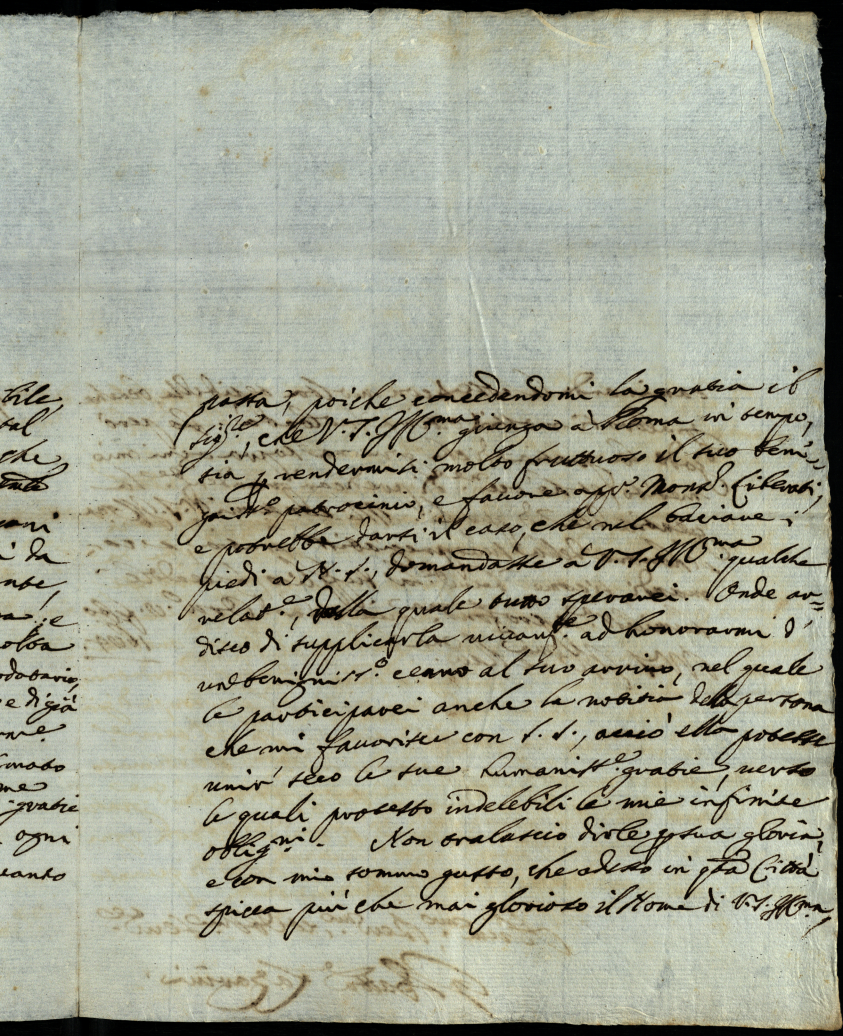 bile,
tal
che
ente
ani
i da
ente,
a, e
olta
odatario,
e di già
rme
rmato
me
gratie
ogni
uanto
passa, poiche concedendomi la gratia il
Sig.re, che V.S. Ill.ma giunga à Roma in tempo,
sia p rendermisi molto fruttuoso il suo beni=
gniss.o patrocinio, e favore app.o Mons.r Ciberati,
e potrebbe darsi il caso, che nel baciare i
piedi a N.S., domandasse à V.S. Ill.ma qualche
relat.e, dalla quale tutto sperarei. Onde ar=
disco di supplicarla vivam.te ad honorarmi d'
un benigniss.o cenno al suo arrivo, nel quale
le participarei anche la notitia della persona
che mi favorisce con S.S., acciò ella potesse
unir' seco le sue humaniss.e gratie, verso
le quali protesto indelebili le mie infinite
oblig.ni. Non tralascio dirle p sua gloria,
e con mio sommo gusto, che adesso in qta Città
spicca più che mai glorioso il Nome di V.S. Ill.ma,